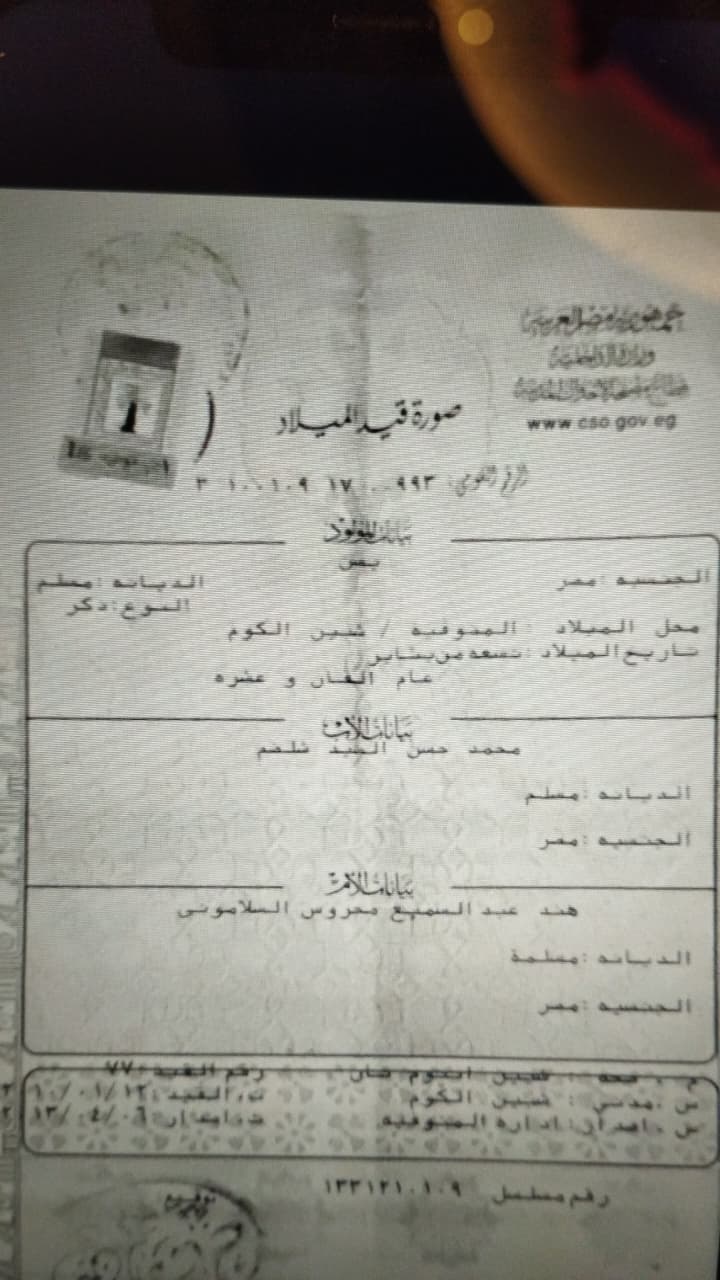 جمهورية مصر العربية
وزارة الداخلية
قطاع مصلحة الأحوال المدنية
www.cso.gov.eg
صورة قيد الميلاد
الرقم القومي:
بيانات المولود
يس
الجنسيه :مصر الديانه :مسلم
النوع:ذكر
محل الميلاد :المنوفيه / شبين الكوم
تاريخ الميلاد :تسعه من يناير
عام الفان و عشره
بيانات الأب
محمد حسن السيد
الديانه :مسلم
الجنسيه :مصر
بيانات الأم
هند عبد السميع محروس السلامونى
الديانه :مسلمة
الجنسيه :مصر
صحه : شبين الكوم ثان رقم القيد :٧٧
س .مدني : شبين الكوم ت. القيد :١٠/٠١/١٢
اداره المنوفيه ت. اصدار :١٣/٠٤/٠٦
رقم مسلسل